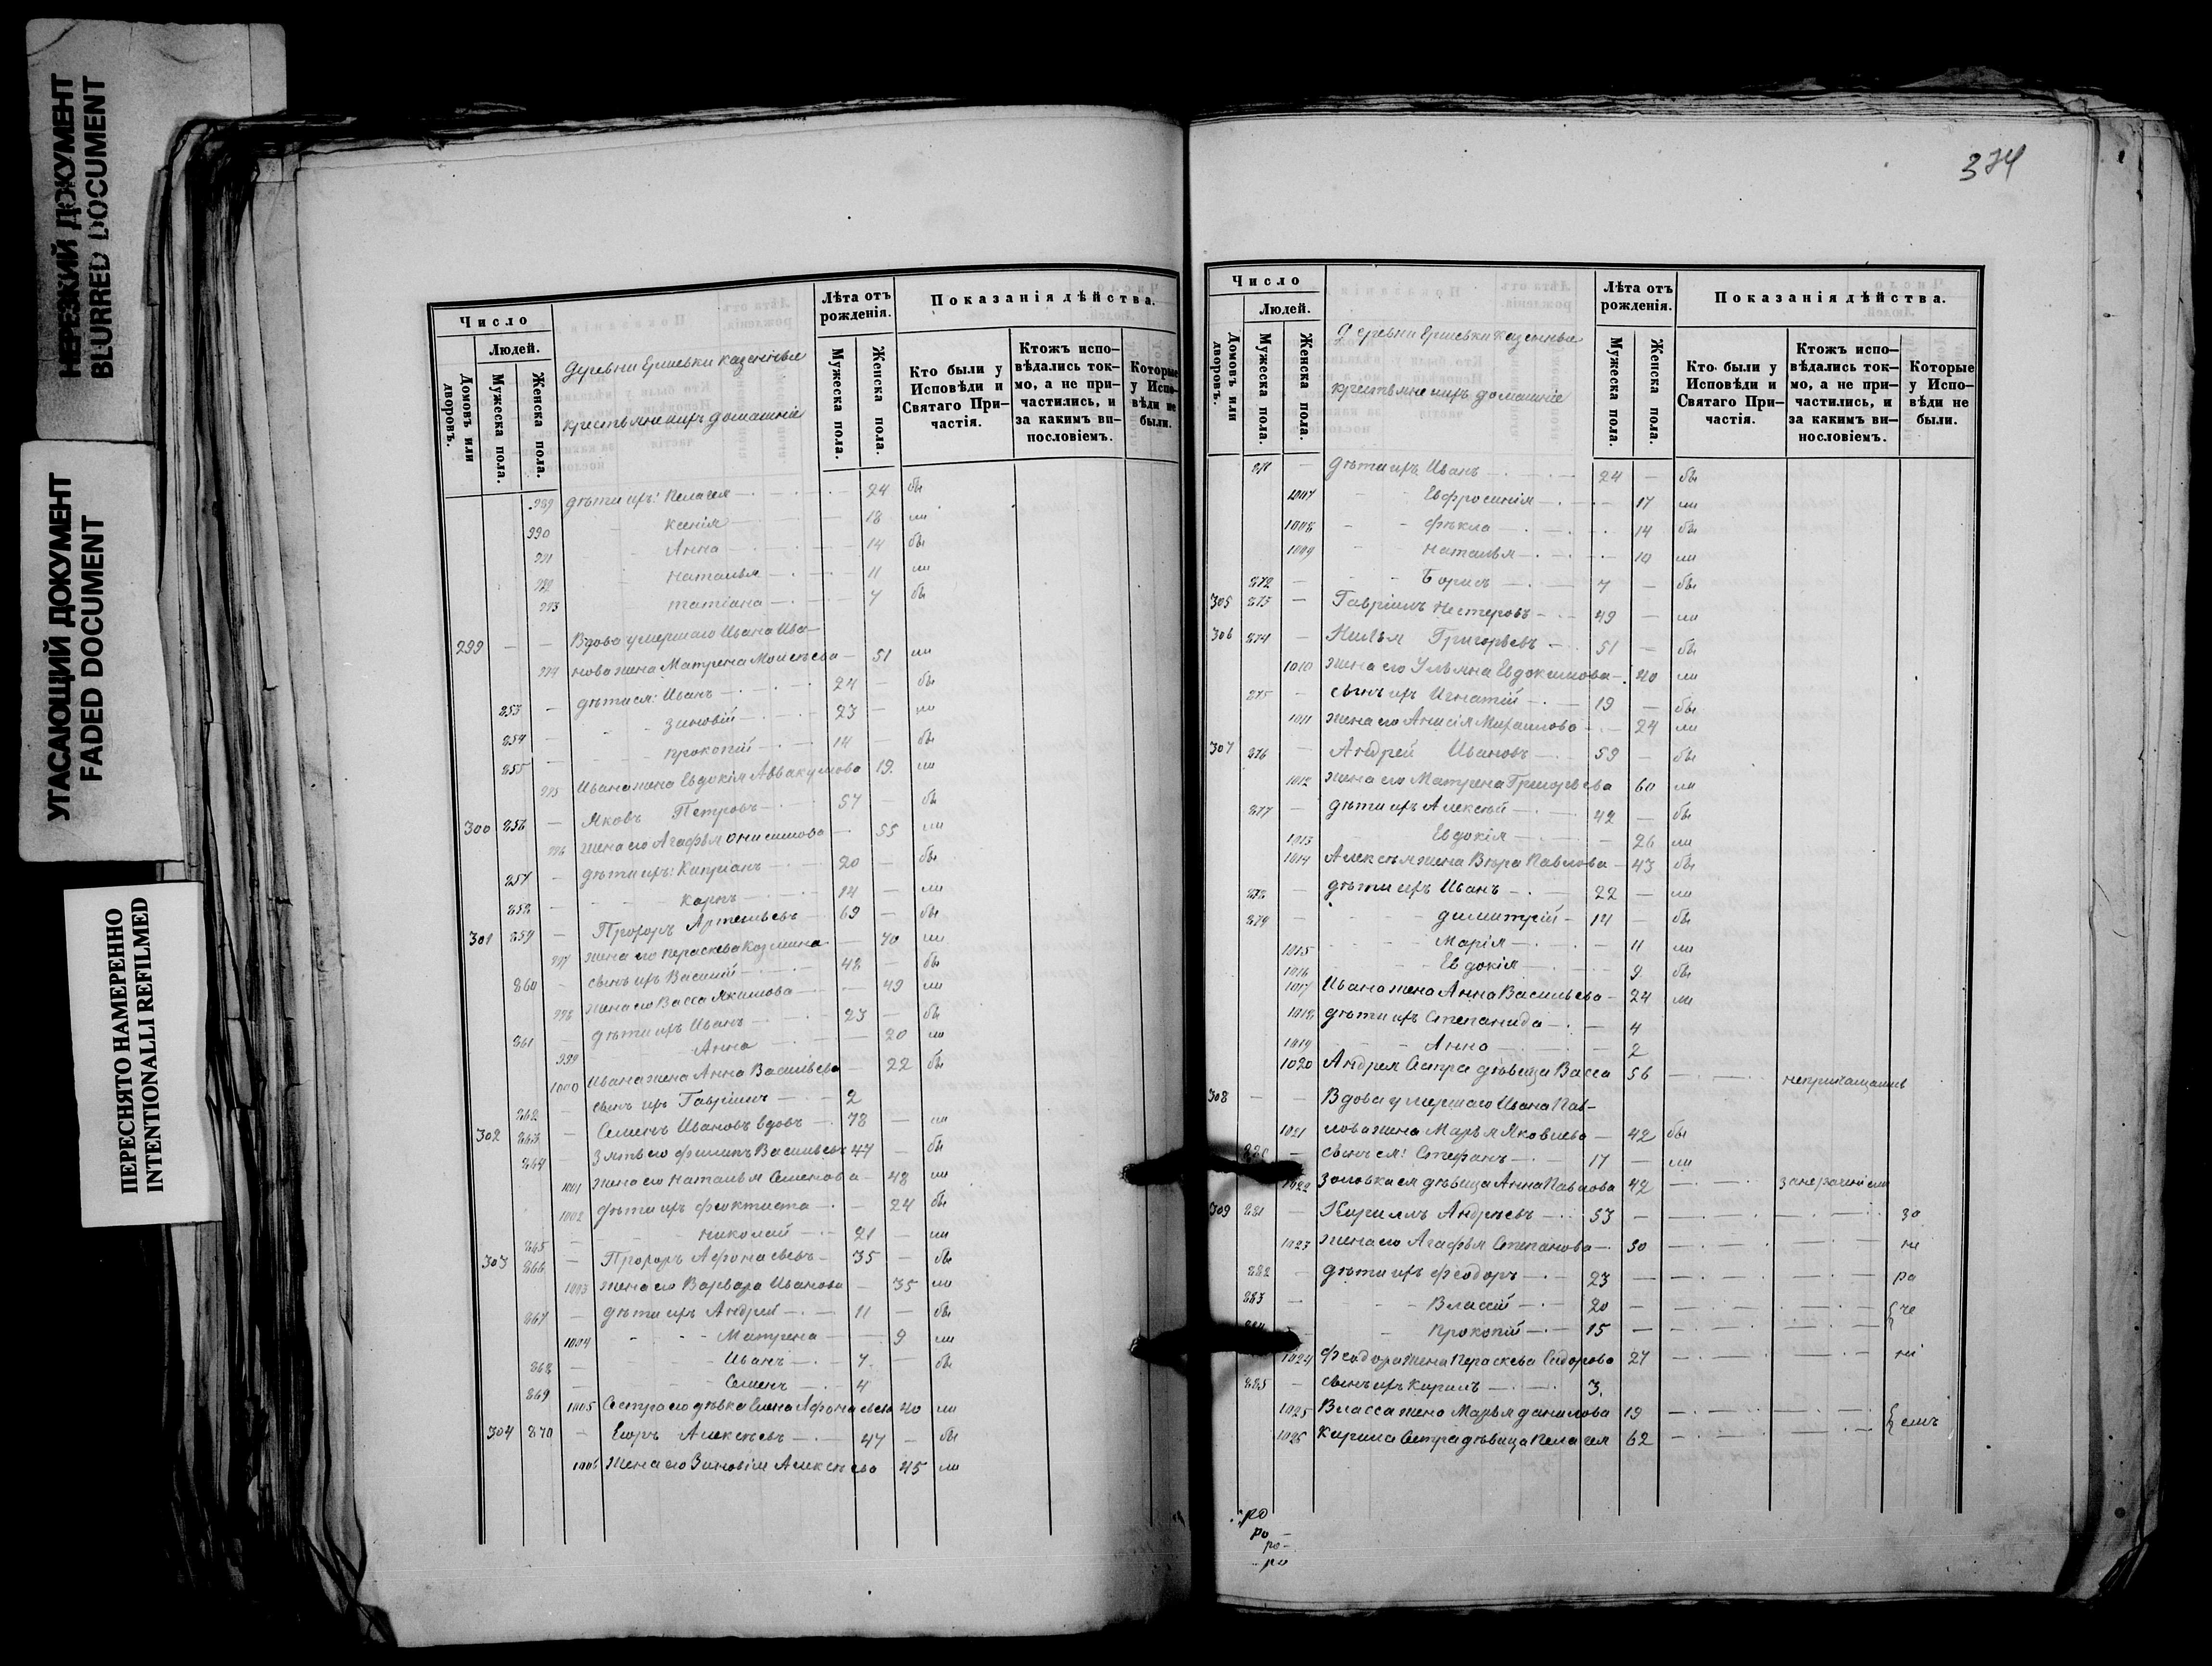 НЕРЕЗКИЙ ДОКУМЕНТ
BLURRED DOCUMENT
УГАСАЮЩИЙ ДОКУМЕНТ
FADED DOCUMENT
ПЕРЕСНЯТО НАМЕРЕННО
INTENTIONALLI REFILMED
Число
Людей.
Домовъ или дворовъ.
Мужеска пола.
Женска пола.
Деревни Ершевки казенные
крестьяне ихъ домашніе
Лѣта отъ рожденія.
Мужеска пола.
Женска пола.
Показанія дѣйства.
Кто были у Исповѣди и Святаго Причастія.
Ктожъ исповѣдались токмо, а не причастились, и за какимъ винословіемъ.
Которые у Исповѣди не были.
989 дѣти ихъ: Пелагея 24 бы
990 Ксенія 18 ли
991 Анна 14 бы
992 Наталья 11 ли
993 Татіана 7 бы
299 — — Вдова умершаго Ивана Ива-
994 нова жена Матрена Моисѣева 51 ли
853 — дѣти ея: Иванъ 24 — бы
854 — Зиновій 23 — ли
855 — Прокопій 14 — бы
995 Ивана жена Евдокія Аввакумова 19 ли
300 856 — Яковъ Петровъ 57 — бы
996 жена его Агафья Онисимова 55 ли
857 — дѣти ихъ: Кипріанъ 20 — бы
858 — Карпъ 14 — ли
301 859 — Прохоръ Артемьевъ 69 — бы
997 жена его Пераскева Козмина 70 ли
860 — сынъ ихъ Василій 48 — бы
998 жена его Васса Якимова 49 ли
861 — дѣти ихъ Иванъ 23 — бы
999 Анна 20 ли
1000 Ивана жена Анна Васильева 22 бы
862 — сынъ ихъ Гавріилъ 2
302 863 — Семенъ Ивановъ вдовъ 78 — ли
864 — Зять его Филипъ Васильевъ 47 — бы
1001 жена его Наталья Семенова 48 ли
1002 дѣти ихъ Феоктиста 24 бы
865 — Николай 21 — ли
303 866 — Прохоръ Афонасьевъ 35 — бы
1003 жена его Варвара Иванова 35 ли
867 — дѣти ихъ Андрей 11 — бы
1004 Матрена 9 ли
868 — Иванъ 7 — бы
869 — Семенъ 4
1005 Сестра его дѣвка Елена Афонасьева 40 ли
304 870 — Егоръ Алексѣевъ 47 — бы
1006 жена его Зиновія Алексѣева 45 ли
374
Число
Людей.
Домовъ или дворовъ.
Мужеска пола.
Женска пола.
Деревни Ершевки казенные
крестьяне ихъ домашніе
Лѣта отъ рожденія.
Мужеска пола.
Женска пола.
Показанія дѣйства.
Кто были у Исповѣди и Святаго Причастія.
Ктожъ исповѣдались токмо, а не причастились, и за какимъ винословіемъ.
Которые у Исповѣди не были.
871 — дѣти ихъ Иванъ 24 — бы
1007 Евфросинія 17 ли
1008 Фекла 14 бы
1009 Наталья 10 ли
872 — Борисъ 7 — бы
305 873 — Гавріилъ Нестеровъ 49 — ли
306 874 — Григорьевъ 51 — бы
1010 жена его Ульяна Евдокимова 40 ли
875 — сынъ ихъ Игнатій 19 — бы
1011 жена его Анисія 24 ли
307 876 — Андрей Ивановъ 59 — бы
1012 жена его Матрена Григорьева 60 ли
877 — дѣти ихъ Алексѣй 42 — бы
1013 Евдокія 26 ли
1014 Алексѣя жена Вѣра Павлова 43 бы
878 — дѣти ихъ Иванъ 22 — ли
879 — Димитрій 14 — бы
1015 Марія 11 ли
1016 Евдокія 9 бы
1017 Ивана жена Анна Васильева 24 ли
1018 дѣти ихъ Степанида 4
1019 Анна 2
1020 Андрея Сестра дѣвица Васса 56 непричащались
308 — — Вдова умершаго Ивана Пав-
1021 лова жена Марья Яковлева 42 бы
880 — сынъ ея: Стефанъ 17 — ли
1022 Золовка ея дѣвица Анна Павлова 42 занерачніемъ
309 881 — Кирилъ Андрѣевъ 53 — за
1023 жена его Агафья Степанова 50 не
882 — дѣти ихъ Феодоръ 23 — ра
883 — Власій 20 — че
884 — Прокопій 15 —
1024 Феодора жена Пераскева Сидорова 27 ні
885 — сынъ ихъ Кирилъ 3
1025 Власа жена Марья Данилова 19 емъ
1026 Кирила Сестра дѣвица Пелагея 62
ро
ро
ро
ро